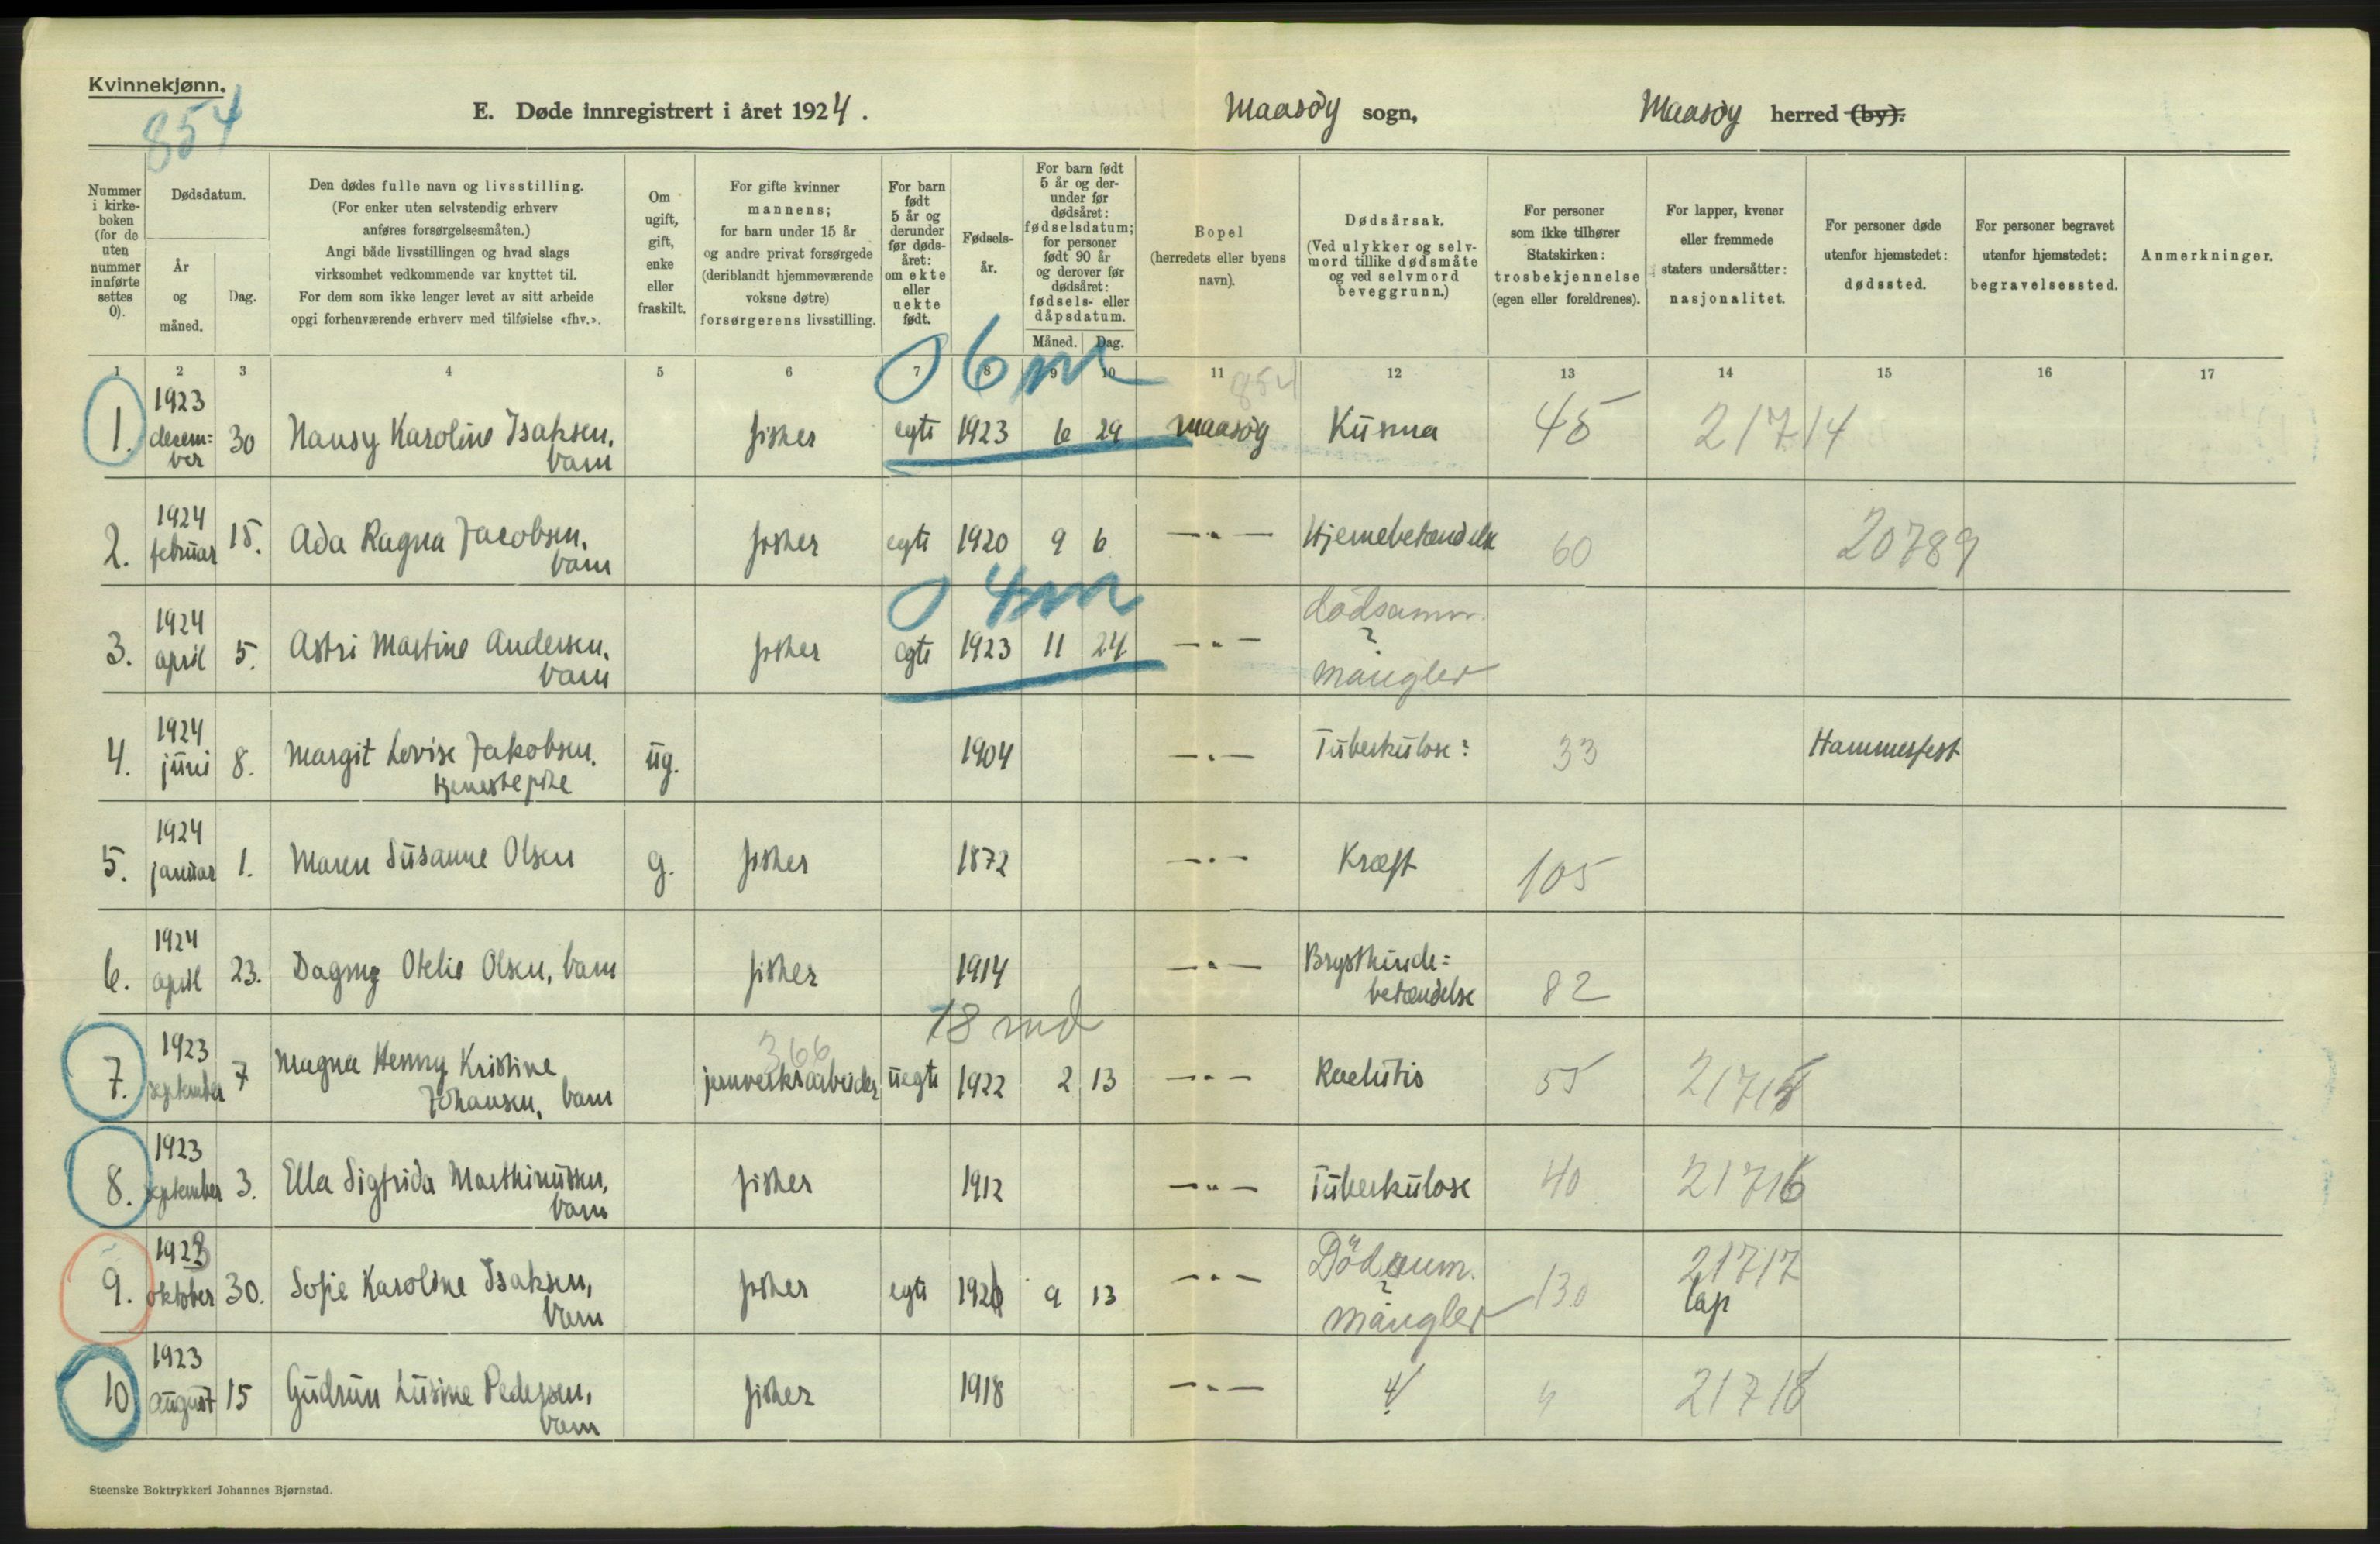 Kvinnekjønn.
854
E. Døde innregistrert i året 1924. Maasöy sogn, Maasöy herred (by).
Nummer i kirke-boken (for de uten nummer innførte settes 0).
Dødsdatum.
År og måned.
Dag.
Den dødes fulle navn og livsstilling.
(For enker uten selvstendig erhverv
anføres forsørgelsesmåten.)
Angi både livsstillingen og hvad slags
virksomhet vedkommende var knyttet til.
For dem som ikke lenger levet av sitt arbeide
opgi forhenværende erhverv med tilføielse «fhv.».
Om ugift, gift, enke eller fraskilt.
For gifte kvinner
mannens;
for barn under 15 år
og andre privat forsørgede
(deriblandt hjemmeværende
voksne døtre)
forsørgerens livsstilling.
For barn født 5 år og derunder før døds-året: om ekte eller uekte født.
Fødsels-år.
For barn født 5 år og der-under før dødsåret: fødselsdatum; for personer født 90 år og derover før dødsåret: fødsels- eller dåpsdatum.
Måned. Dag.
Bopel
(herredets eller byens navn).
Dødsårsak.
(Ved ulykker og selv-mord tillike dødsmåte og ved selvmord beveggrunn.)
For personer
som ikke tilhører
Statskirken:
trosbekjennelse
(egen eller foreldrenes).
For lapper, kvener
eller fremmede
staters undersåtter:
nasjonalitet.
For personer døde
utenfor hjemstedet:
dødssted.
For personer begravet
utenfor hjemstedet:
begravelsessted.
Anmerkninger.
1 2 3 4 5 6 7 8 9 10 11 12 13 14 15 16 17
0 6 m
854
1. 1923 desem=ber 30 Nansy Karoline Isaksen, barn fisker egte 1923 6 29 Maasöy Kusma 45 21714
2. 1924 februar 15. Ada Ragna Jacobsen, barn fisker egte 1920 9 6 —"— Hjernebetændelse 60 20789
0 4 m
3. 1924 april 5. Astri Martine Andersen, barn fisker egte 1923 11 24 —"— dødsanm. ? mangler
4. 1924 juni 8. Margit Lovise Jakobsen, tjenestepike ug. 1904 —"— Tuberkulose? 33 Hammerfest
5. 1924 januar 1. Maren Susanne Olsen g. fisker 1872 —"— Kræft 105
6. 1924 april 23. Dagny Otelie Olsen, barn fisker 1914 —"— Brysthinde=betændelse 82
18 md
366
7. 1923 september 7 Magna Henny Kristine Johansen, barn jernverksarbeider uegte 1922 2 13 —"— Rachitis 55 21715
8. 1923 september 3. Ella Sigfrida Marthinussen, barn fisker 1912 —"— Tuberkulose 40 21716
9. 1923 oktober 30. Sofie Karoline Isaksen, barn fisker egte 1920 9 13 —"— Dödsanm. ? mangler 130 21717 lap
10 1923 august 15 Gudrun Lusine Pedersen, barn fisker 1918 —"— " " 21718
Steenske Boktrykkeri Johannes Bjørnstad.